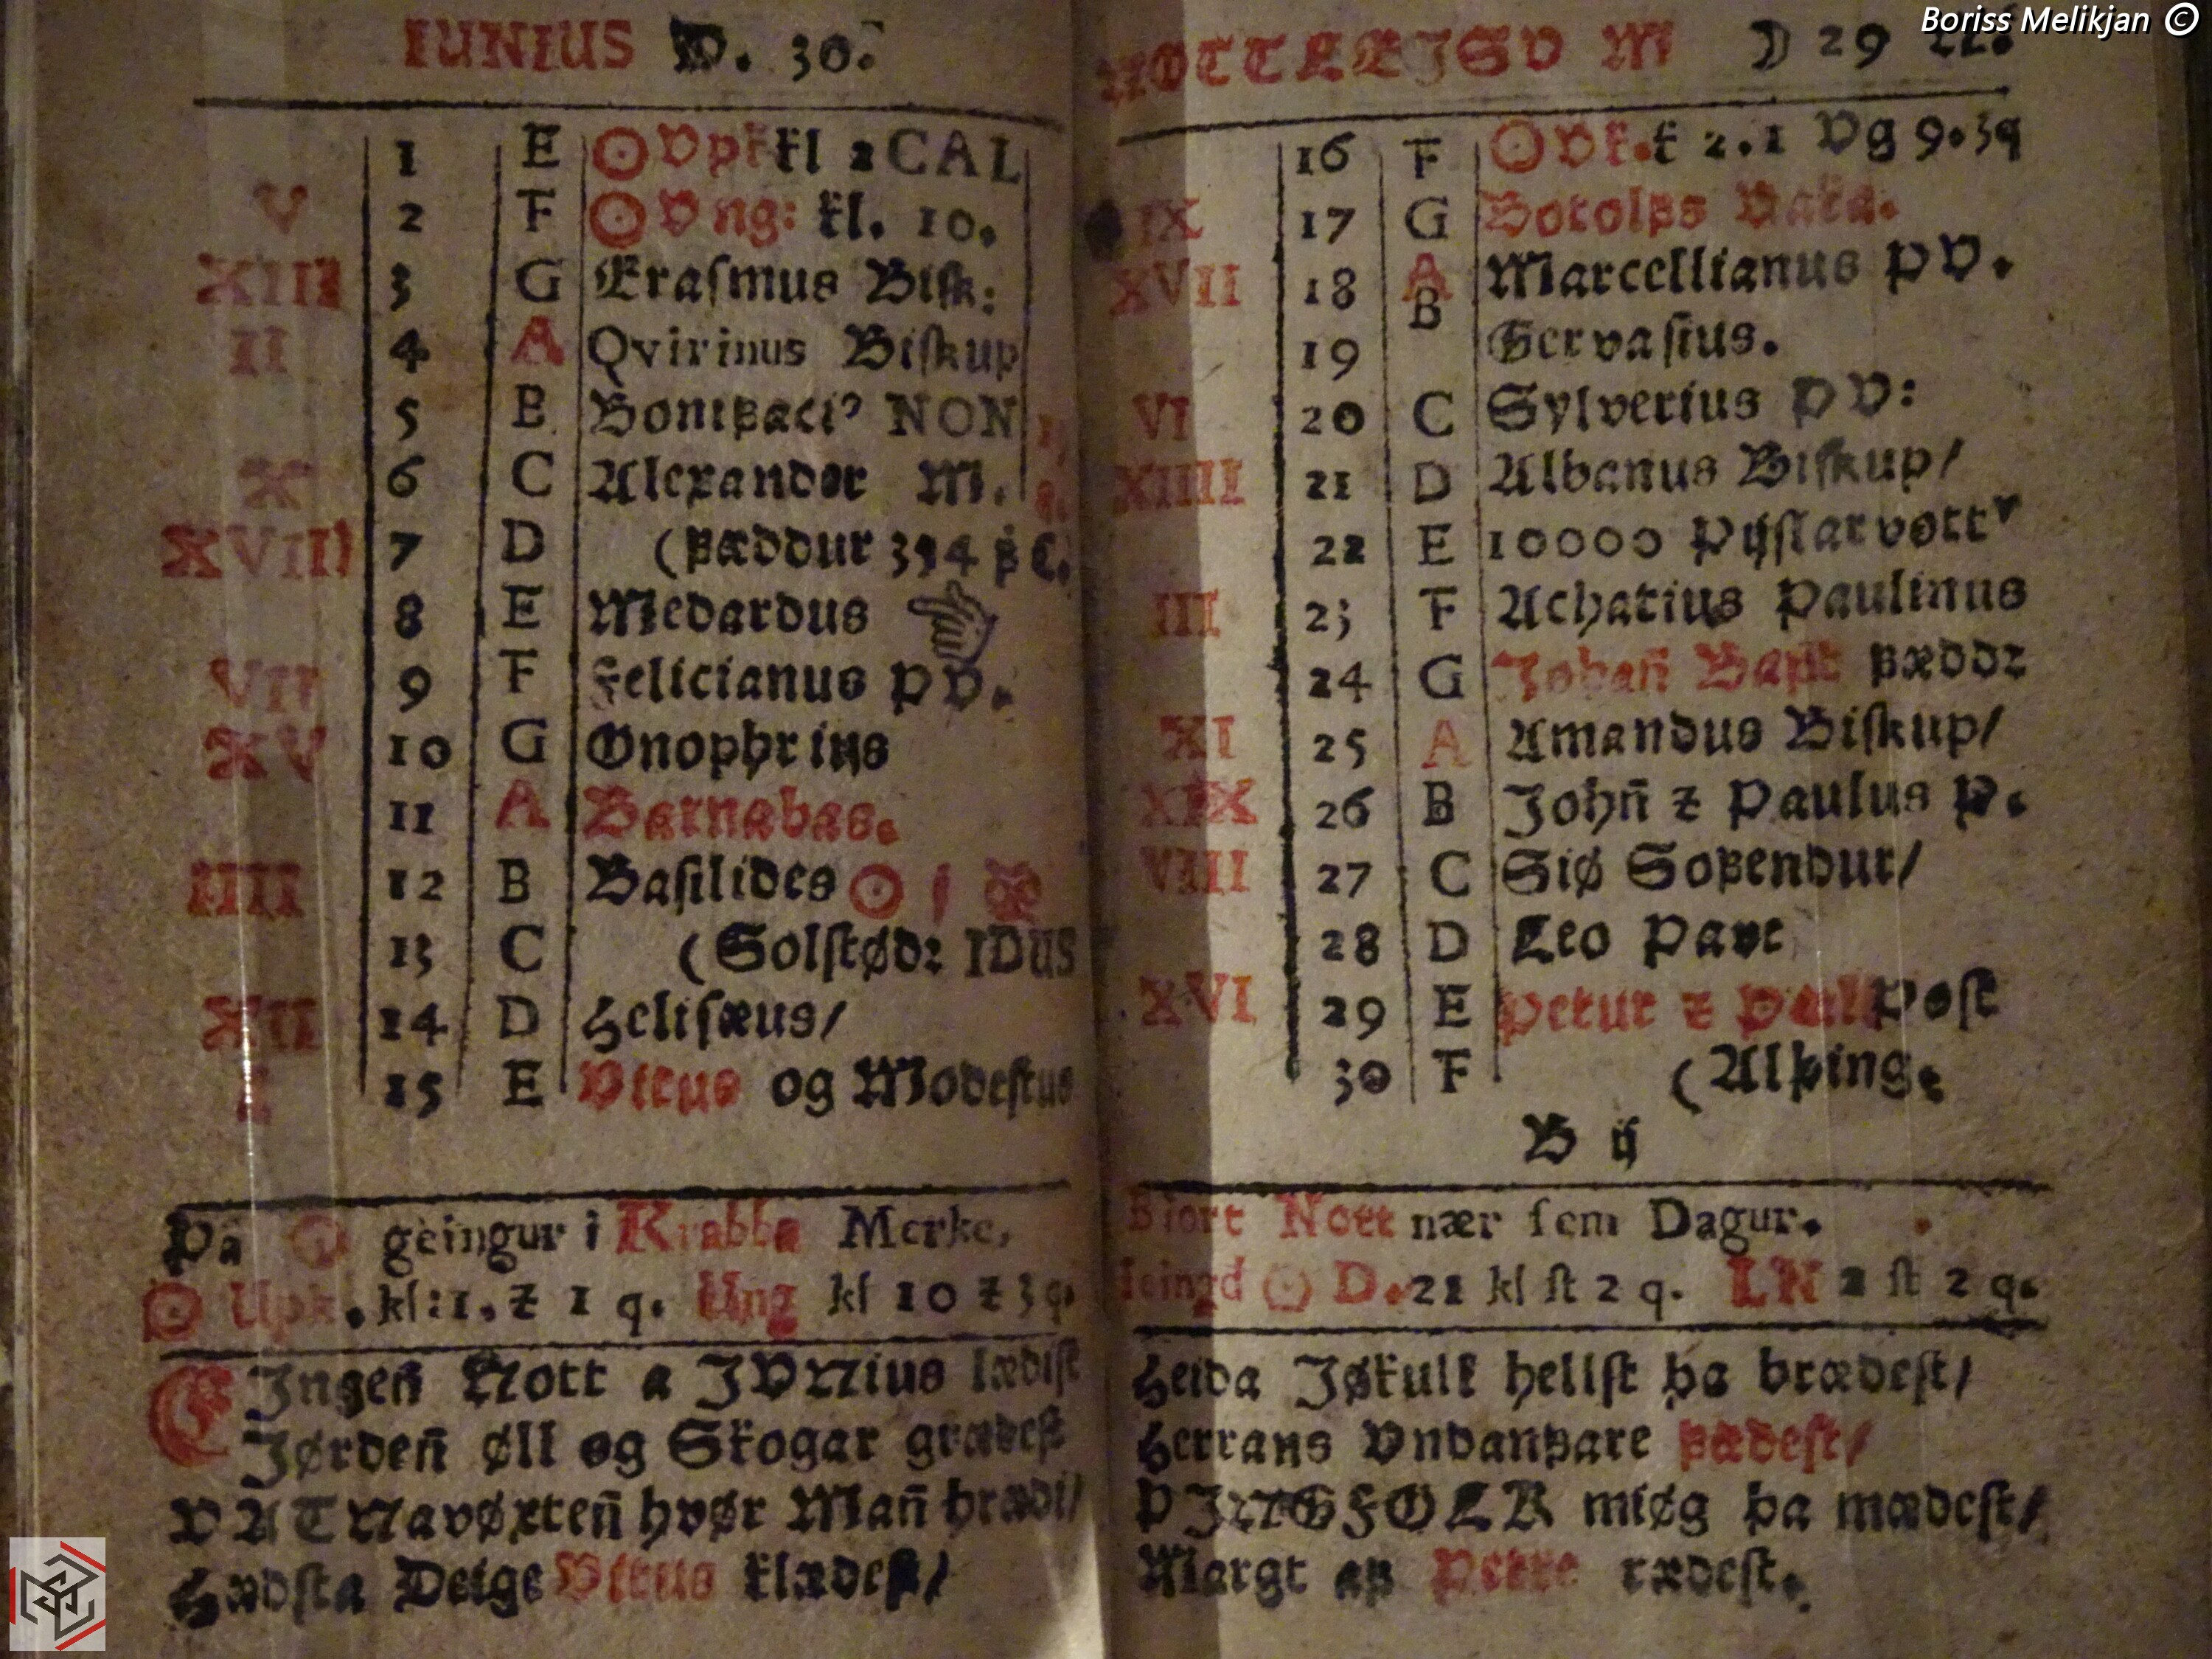 Boriss Melikjan ©
IUNIUS D. 30.
1 E ☉ Vpk kl 2 CAL
V 2 F ☉ Vng: kl. 10.
XIII 3 G Eraſmus Biſk:
II 4 A Qvirinus Biſkup
5 B Bonifaci⁹ NON
X 6 C Alexander M.
XVIII 7 D (fæddur 394 f C.
8 E Medardus ☜
VII 9 F Felicianus PV.
XV 10 G Onophrius
11 A Barnabas.
IIII 12 B Baſilides ☉ ♋
13 C (Solſtød: IDUS
XII 14 D Heliſæus/
I 15 E Vitus og Modeſtus
Þa ☉ geingur i Krabba Merke,
☉ Upk. kl: 1. z 1 q. Ung kl 10 z 3 q.
EJngen̄ Nott a JVNius lædiſt
Jørden̄ øll og Skogar grædeſt
VATNavøxten̄ hvør Man̄ hrædi/
Hædſta Deige Vitus klædeſt/
NOTTLEJSV M ☽ 29
16 F ☉ Vk. k 2. 1 Vg 9. 3q
IX 17 G Botolfs Vaka.
XVII 18 A Marcellianus PV.
19 B Gervaſius.
VI 20 C Sylverius PV:
XIIII 21 D Albanus Biſkup/
22 E 10000 Pijſlarvott
III 23 F Achatius Paulinus
24 G Johan̄ Bapt fæddz
XI 25 A Amandus Biſkup/
XIX 26 B John̄ z Paulus P.
VIII 27 C Siø Sofendur/
28 D Leo Pave
XVI 29 E Petur z Pall Poſt
30 F (Alþing.
B ij
Biort Nott nær ſem Dagur.
leingd ☉ D. 21 kl ſt 2 q. LN 2 ſt 2 q.
Heida Jøkull hellſt þa brædeſt/
Herrans Vndanfare fædeſt/
ÞJNGFOLK miøg þa mædeſt/
Margt af Petre rædeſt.